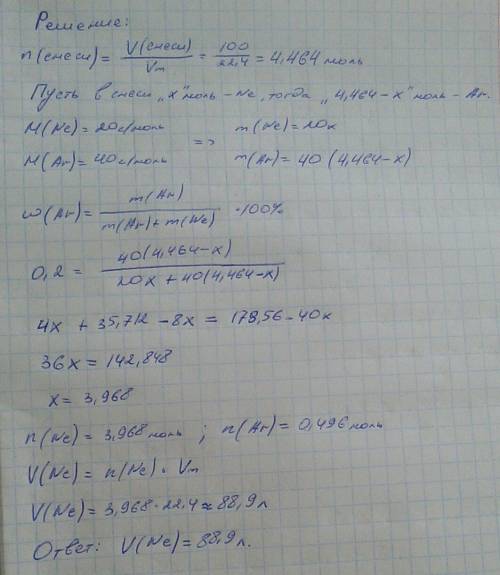 Решение:
n(смеси) = V(смеси)/Vm = 100/22,4 = 4,464 моль
Пусть в смеси „x" моль - Ne, тогда „4,464-x" моль - Ar.
M(Ne) = 20г/моль => m(Ne) = 20x
M(Ar) = 40г/моль m(Ar) = 40(4,464-x)
w(Ar) = m(Ar)/(m(Ar)+m(Ne)) · 100%
0,2 = 40(4,464-x)/(20x + 40(4,464-x))
4x + 35,712 - 8x = 178,56 - 40x
36x = 142,848
x = 3,968
n(Ne) = 3,968 моль ; n(Ar) = 0,496 моль
V(Ne) = n(Ne) · Vm
V(Ne) = 3,968 · 22,4 ≈ 88,9 л
Ответ: V(Ne) = 88,9 л.